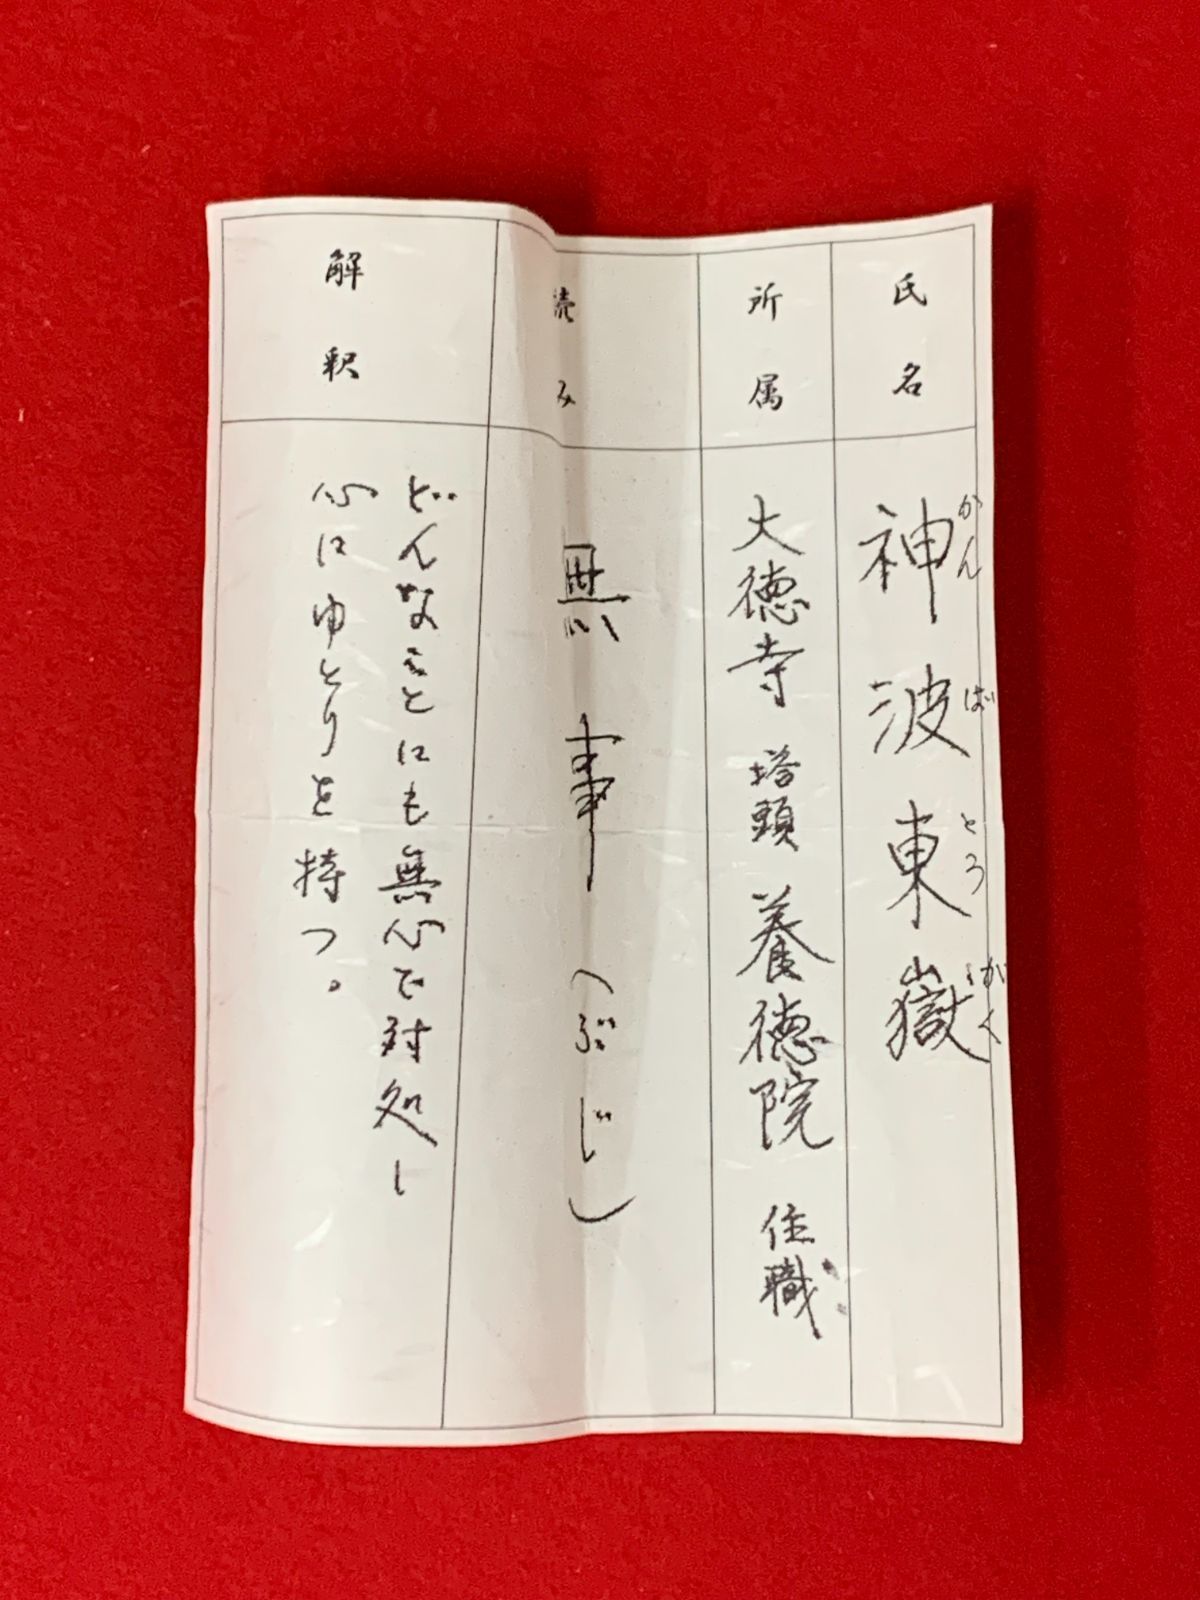 氏名
神波東嶽
かんばとうがく
所属
大徳寺 塔頭 養徳院 住職
読み
無事(ぶじ)
解釈
どんなことにも無心で対処し
心にゆとりを持つ。